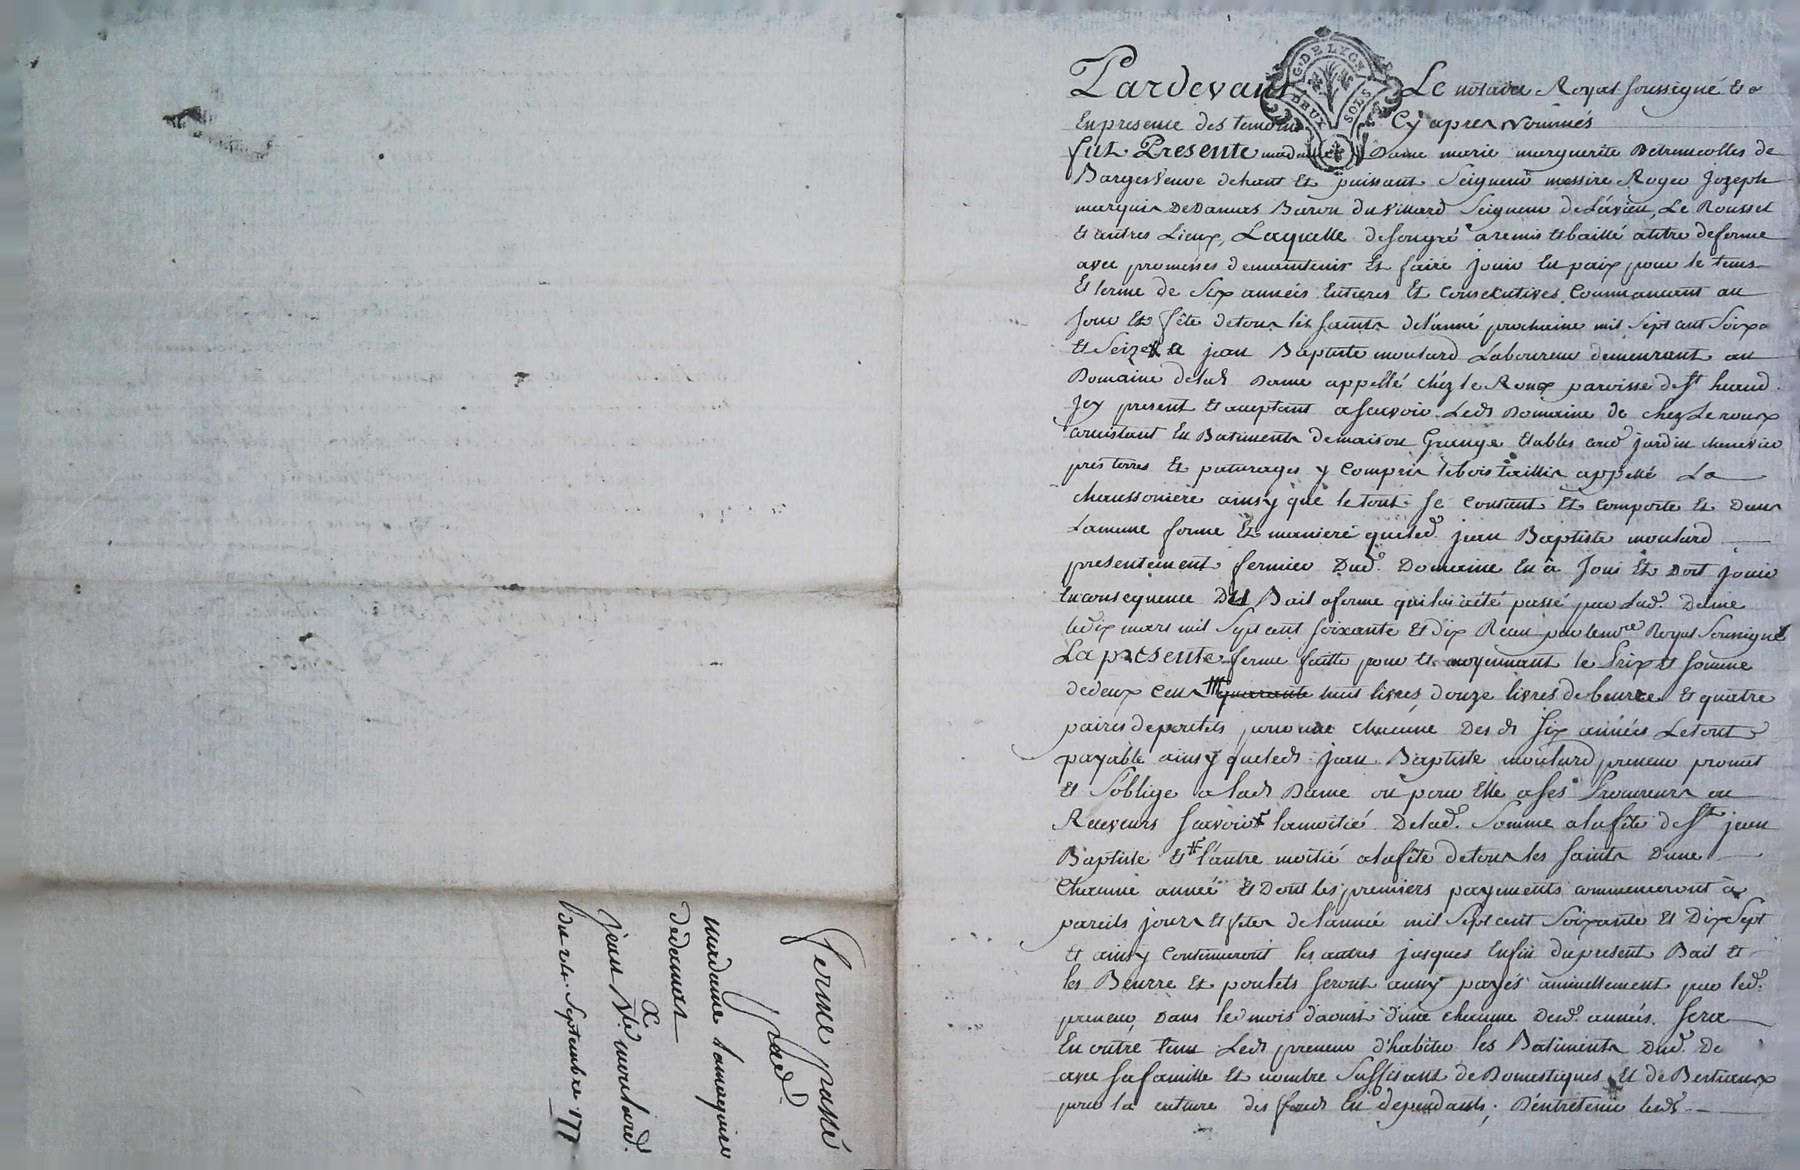 G. DE LYON
DEUX SOLS
Pardevant Le notaire Royal soussigné et a
En presence des temoins Cy apres Nommés
fut Presente madame Dame marie marguerite de
Barges Veuve dehaut Et puissant Seigneur messire Roger Jozeph
marquis DeDamas Baron du Villard Seigneur de Lavieu, Le Rousset
Et autres Lieux, Laquelle desongré a remis Et baillé atitre deferme
avec promesses demaintenir Et faire jouir En paix pour le tems
Et terme de Six années Entieres Et Consecutives Commancant au
Jour Et fête detous les saints delanné prochaine mil Sept cent Soixe
Et Seize a jean Baptiste moulard Laboureur demeurant au
Domaine delad Dame appellé chéz le Roux paroisse de St heand
Jcy present Et aceptant ascavoir Led Domaine de chez Le roux
Consistant En Batiments demaison Grange Etables cour jardin chenevier
prés terres Et paturages y Compris lebois taillis appellé La
chaussoniere ainsy que letout Se Contient Et Comporte Et Dans
Lameme forme Et maniere queled. jean Baptiste moulard
presentement fermier Dud. Domaine En a Joui Et Doit jouir
Enconsequence Du Bail aferme quiluiaété passé par Lad. Dame
ledix mars mil Sept cent soixante Et dix Recu par lenore Royal Soussigné
La presente ferme faitte pour Et moyennant le Prix Et somme
dedeux Cens quarante huit livres, douze livres de beurre Et quatre
paires depoulets pour chacune Des d Six années Letout
payable ainsy queled. jean Baptiste moulard preneur promet
Et S'oblige a lad Dame ou pour Elle ases Procureurs ou
Receveurs scavoir lamoitié Delad. Somme alafête de St jean
Baptiste Et l'autre moitié alafête detous les saints D'une
Chacune année Et Dont les premiers payements commenceront à
pareils jours Et fêtes de l'année mil Sept cent Soixante Et Dix Sept
Et ainsy Continueront les autres jusques Enfin dupresent Bail Et
les Beurre Et poulets seront aussy payés annuellement par led.
preneur Dans le mois d'aoust d'une chacune Desd. années. Sera
En outre tenu Led preneur d'habiter les Batiments Dud. De
avec sa famille Et nombre Suffisant de Domestiques Et de Bestiaux
pour la culture des fonds En dependants; D'entretenir lesd
ferme passé
par
madame lamarquise
dedamas
a
jean Bte moulard.
Du 24. Septembre 177